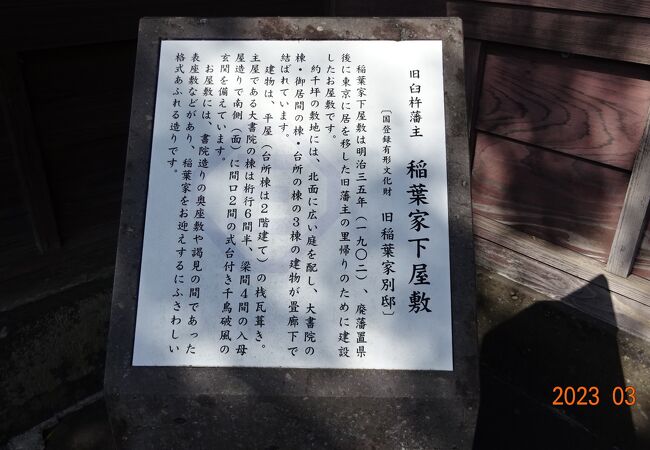 旧臼杵藩主 稲葉家下屋敷
〔国登録有形文化財 旧稲葉家別邸〕
稲葉家下屋敷は明治三五年(一九〇二)、廃藩置県
後に東京に居を移した旧藩主の里帰りのために建設
したお屋敷です。
約千坪の敷地には、北面に広い庭を配し、大書院の
棟・御居間の棟・台所の棟の3棟の建物が畳廊下で
結ばれています。
建物は、平屋(台所棟は2階建て)の桟瓦葺き。
主屋である大書院の棟は桁行6間半、梁間4間の入母
屋造りで南側(面)に間口2間の式台付き千鳥破風の
玄関を備えています。
お屋敷には、書院造りの奥座敷や謁見の間であった
表座敷などがあり、稲葉家をお迎えするにふさわしい
格式あふれる造りです。
2023 03